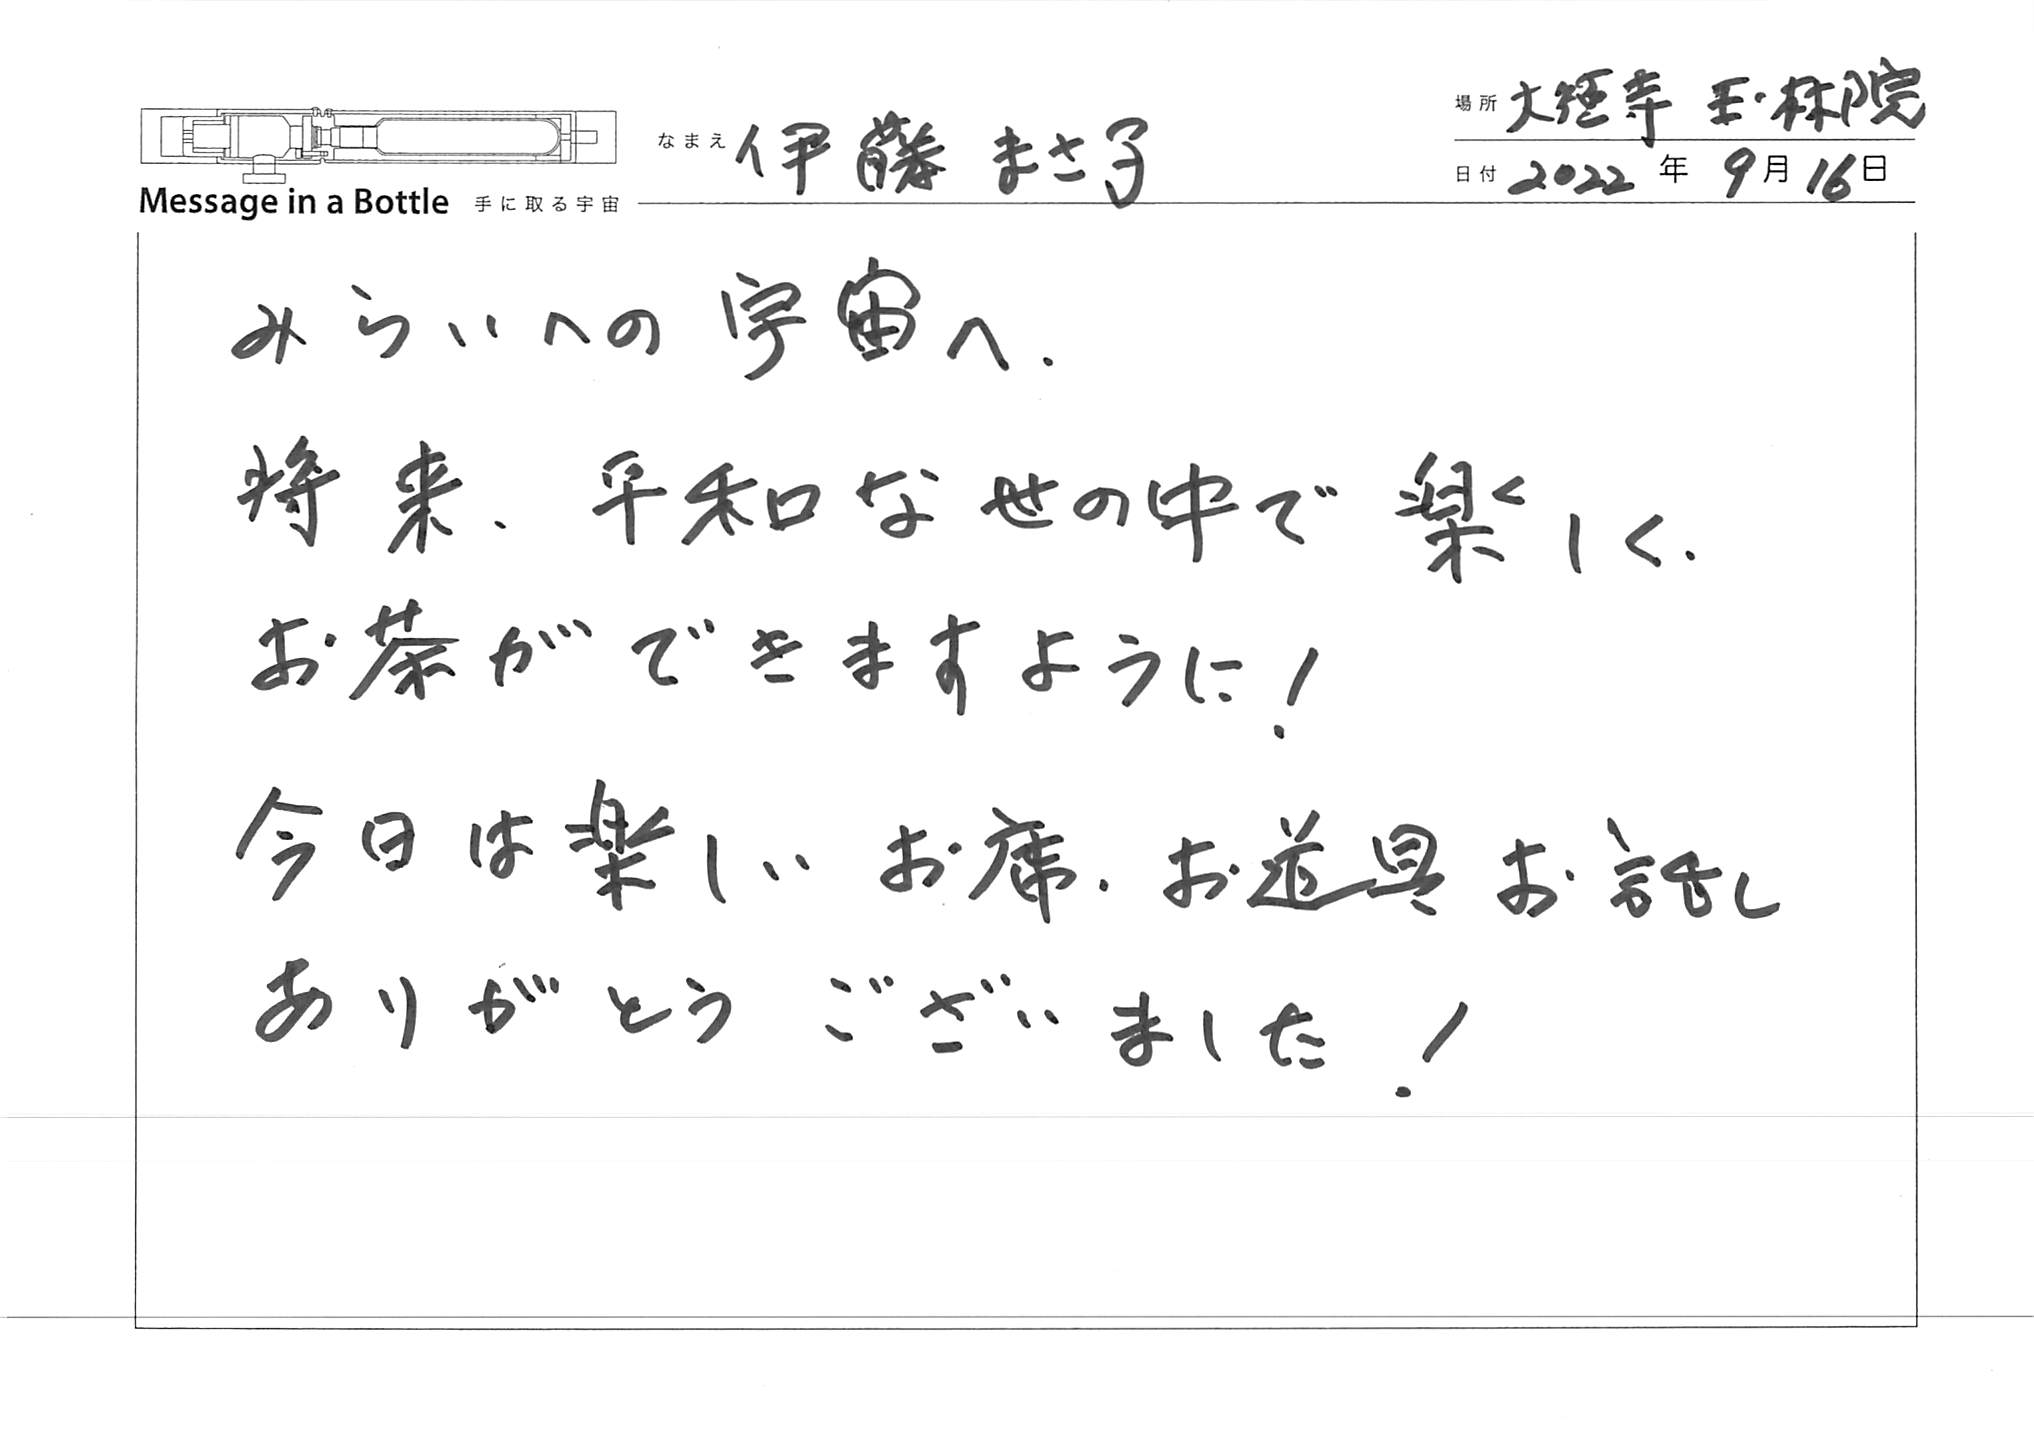 場所 大徳寺 玉林院
なまえ 伊藤 まさ子
日付 2022 年 9 月 16 日
Message in a Bottle 手に取る宇宙
みらいへの宇宙へ.
将来、平和な世の中で楽しく.
お茶ができますように!
今日は楽しいお席、お道具お話し
ありがとうございました!